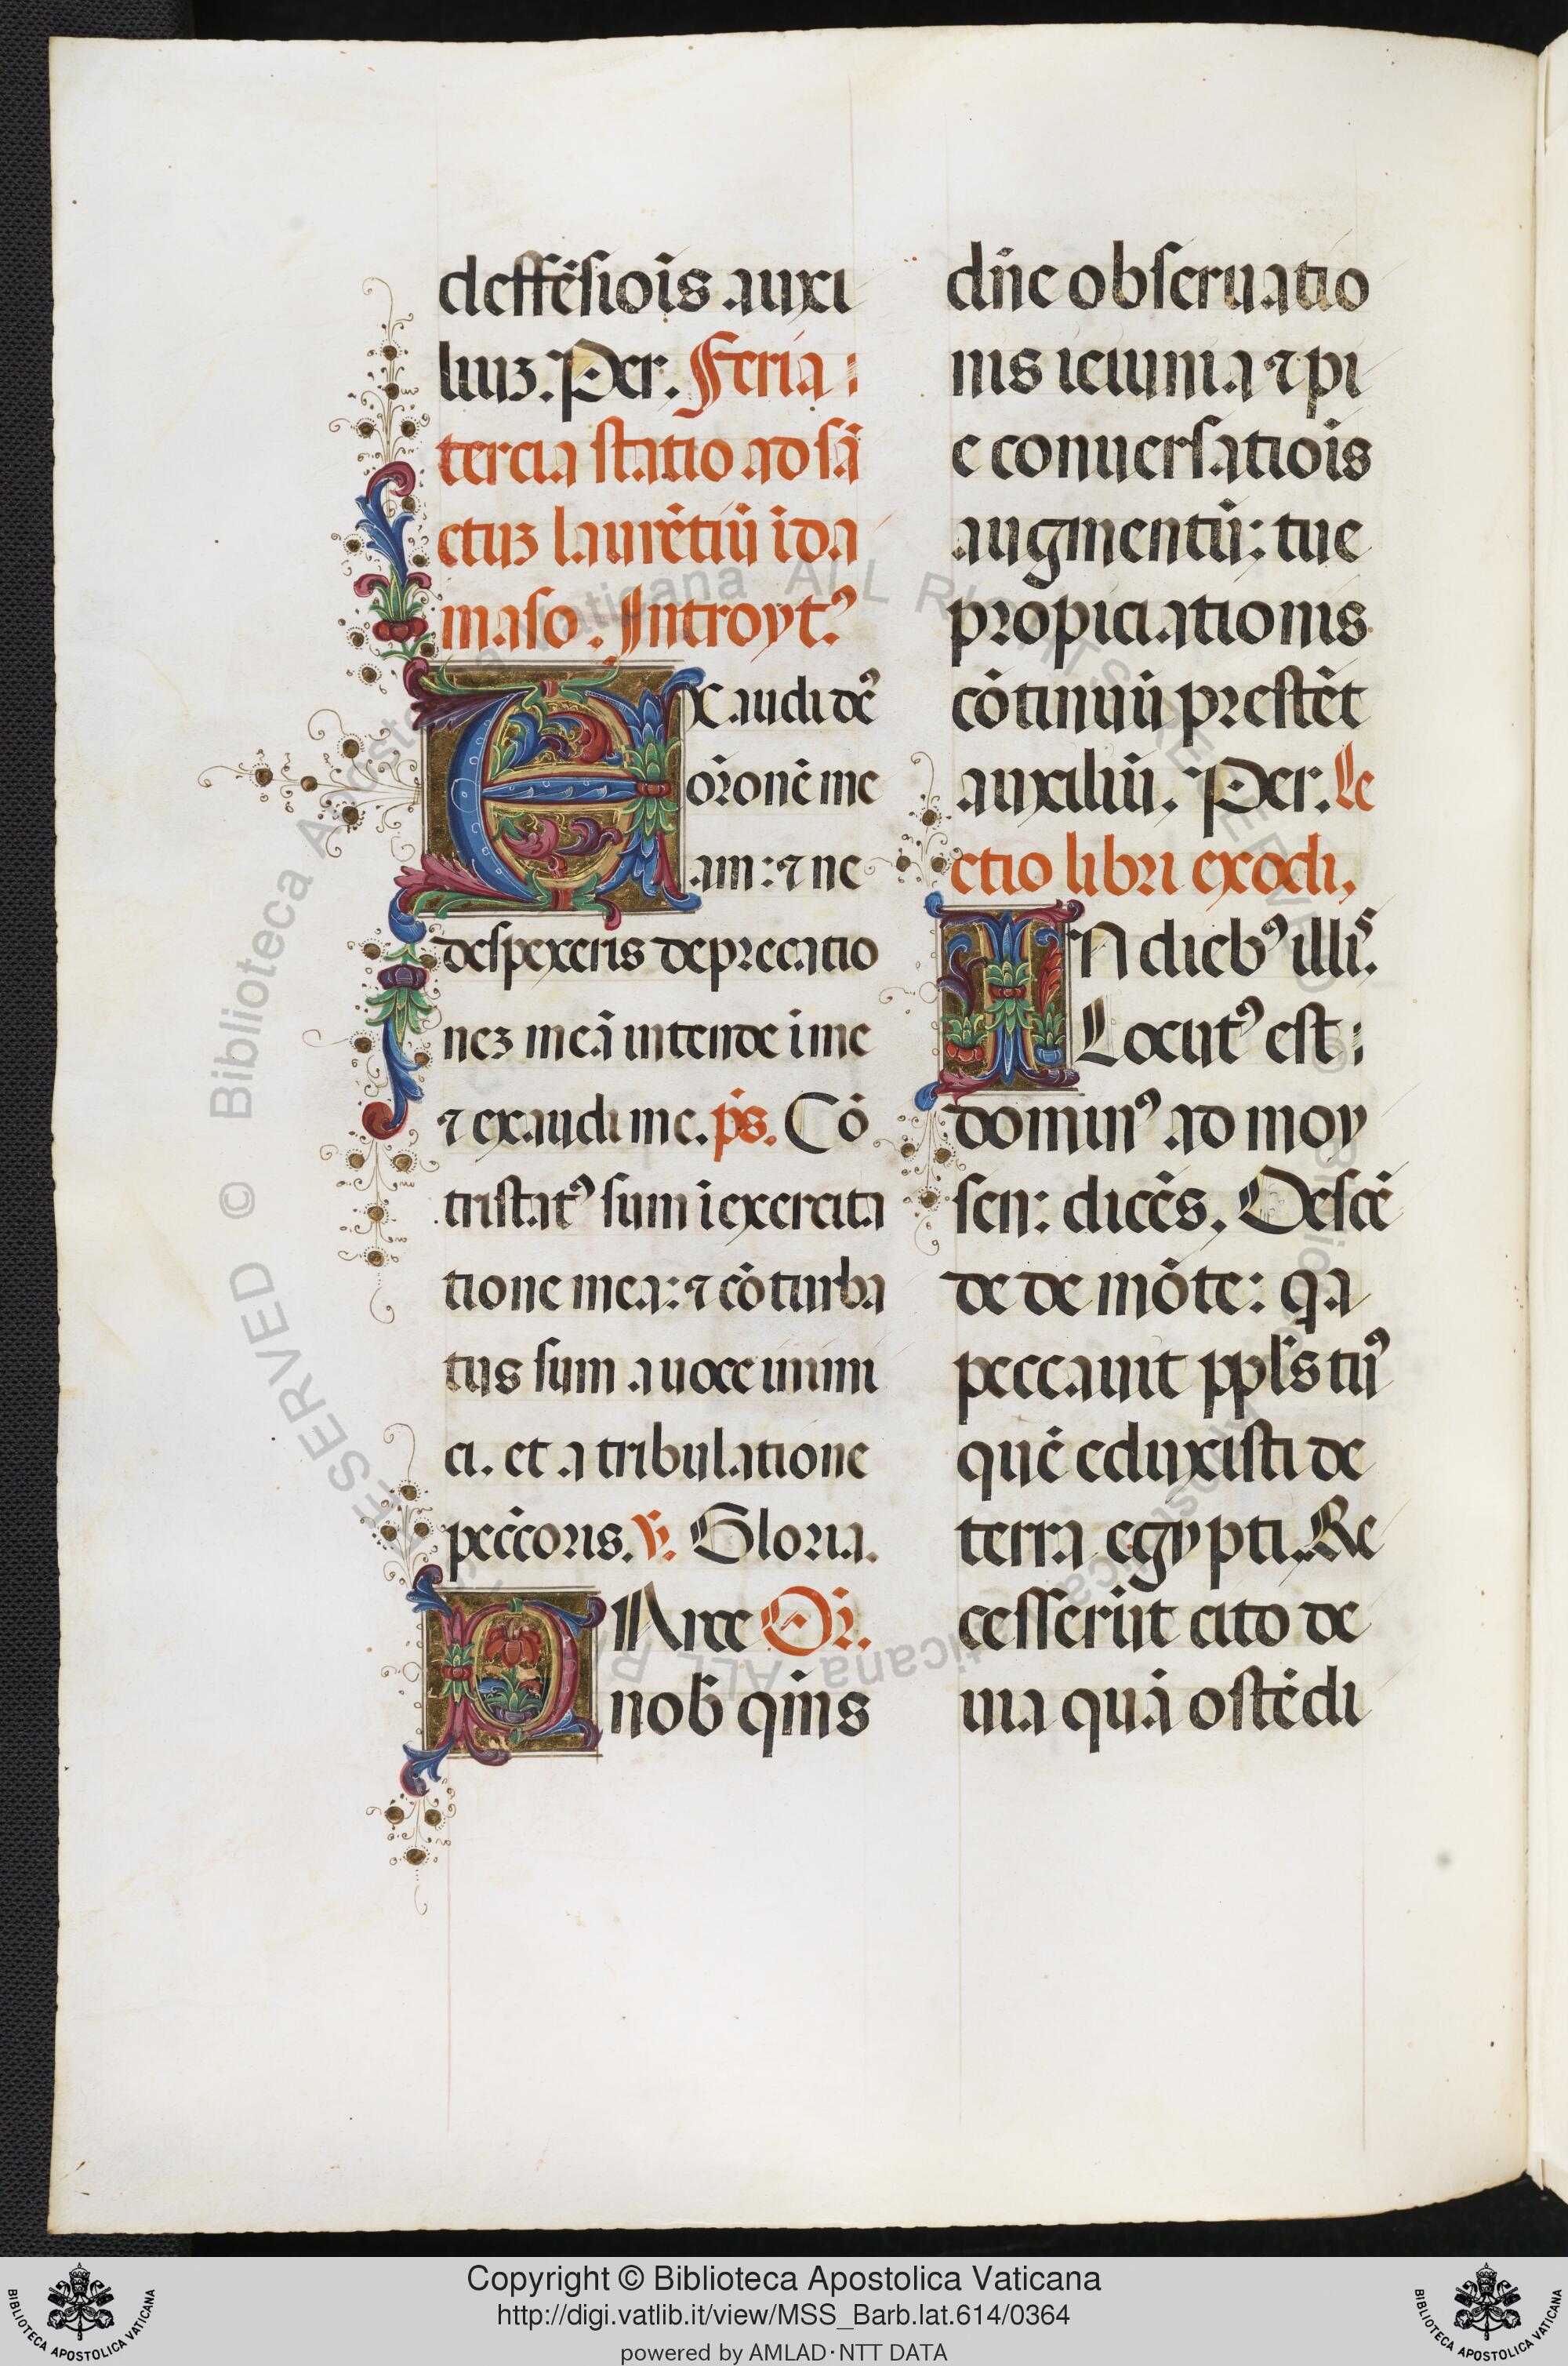 deffēsiōis auxi
liuꝫ. Per. Feria
tercia statio ad sā
ctuꝫ laurētiū ī da
maso. Introytꝰ
EXaudi deꝰ
or̄onē me
am: ⁊ ne
despexeris deprecatio
neꝫ meā intende ī me
⁊ exaudi me. p̄s. Cō
tristatꝰ sum ī exercita
tione mea: ⁊ cōturba
tus sum a uoce inimi
ci. et a tribulatione
pecc̄oris. V̄. Gloria.
NArce Or̄.
nob̄ qm̄s
dn̄e obseruatio
nis ieiunia ⁊ pi
e conuersatiōis
augmentū: tue
propiciationis
cōtinuū prestēt
auxiliū. Per. Le
ctio libri exodi.
IN diebꝰ illis.
Locutꝰ est
dominꝰ ad moy
sen: dicēs. Descē
de de mōte: qa
peccauit ppl̄s tuꝰ
quē eduxisti de
terra egypti. Re
cesserūt cito de
uia quā ostēdi
© Biblioteca Apostolica Vaticana ALL RIGHTS RESERVED
Copyright © Biblioteca Apostolica Vaticana
http://digi.vatlib.it/view/MSS_Barb.lat.614/0364
powered by AMLAD·NTT DATA
BIBLIOTECA APOSTOLICA VATICANA
BIBLIOTECA APOSTOLICA VATICANA